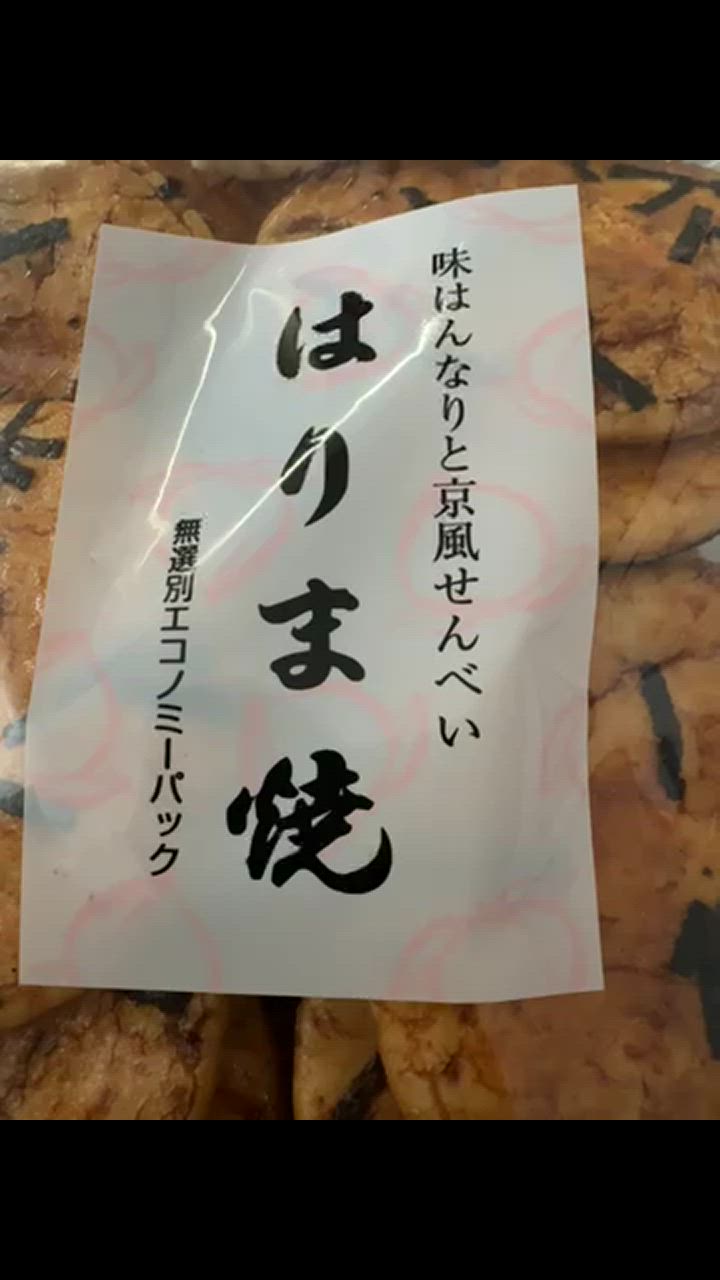 味はんなりと京風せんべい
はりま焼
無選別エコノミーパック